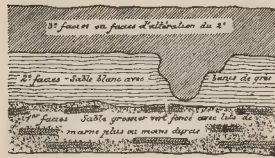 3e facies ou facies d'altération du 2e
2e facies - Sable blanc avec bancs de grès
1er facies Sable grossier vert foncé avec lits de
marne plus ou moins durcie